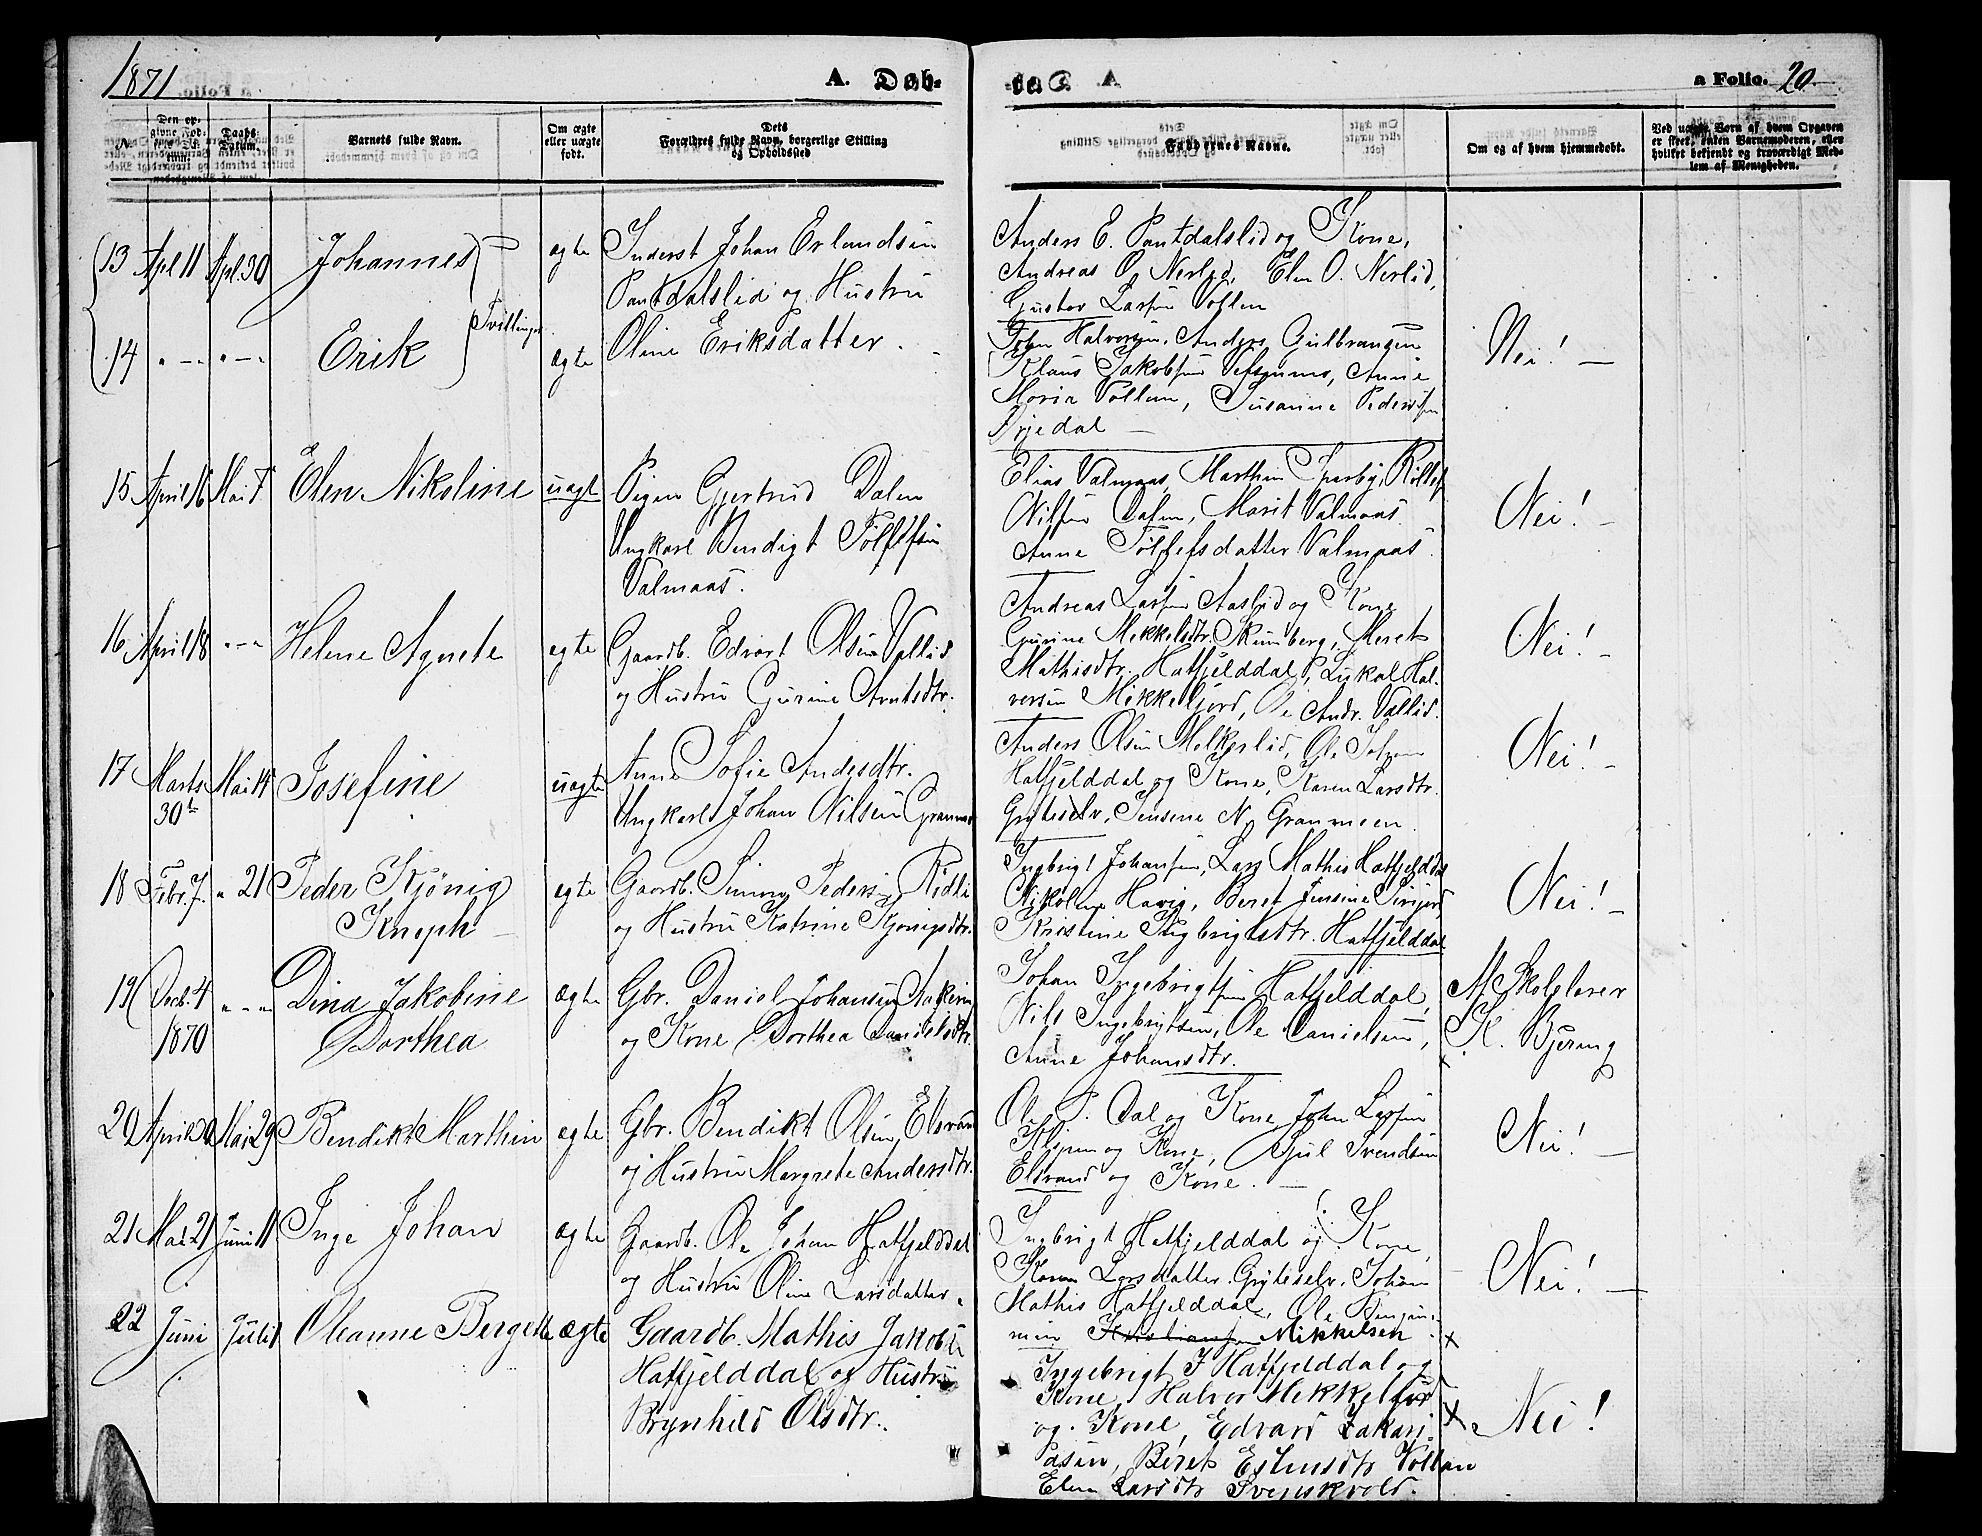 1871
A. Døb-
te.
a Folio. 20.
No.
Den op-
givne Fød-
Daabs-
Datum.
Barnets fulde Navn.
Om ægte
eller uægte
født.
Dets
Forældres fulde Navn, borgerlige Stilling
og Opholdssted
Faddernes Navne.
Om og af hvem hjemmedøbt.
Ved uægte Børn af hvem Opgaven
er skeet, enten Barnemoderen, eller
hvilket bekjendt og troværdigt Med-
lem af Menigheden.
13 Apl 11 Apl. 30 Johannes ægte
Inderst Johan Erlandsen
Pantdalslid og Hustru
Oline Eriksdatter.
Tvillinger
Anders E. Pantdalslid og Kone,
Andreas O. Nerlid, Elen O. Nerlid,
Gustav Larsen Vollen
14 " — " " — " Erik ægte
John Halvorsen, Anders Gulbransen
Klaus Jakobsen Vefsenmo, Anne
Maria Vollen, Susanne Pedersen
Nei! —
15 April 16 Mai 7 Elen Nikoline uægte
Pigen Gjertrud Dalen
Ungkarl Bendigt Tollefsen
Valmaas.
Elias Valmaas, Marthin
Nilsen Dalen, Marit Valmaas
Anne Tollefsdatter Valmaas.
Nei! —
16 April 18 " — " Helene Agnete egte
Gaardb. Edvart Olsen Vollid
og Hustru Gurine Arntsdtr.
Andreas Larsen Aaslid og Kone
Gurine Mekkelsdtr. Meret
Mathisdtr. Hatfjelddal, Hal-
vorsen Mikkeljord, Ole Andr. Vollid.
Nei! —
17 Marts
30te Mai 14 Josefine uægte
Anne Sofie Andersdtr.
Ungkarl Johan Nilsen
Anders Olsen Ole Johan
Hatfjelddal og Kone, Karen Larsdtr.
Gryteselv, Jensine N. Granmoen.
Nei! —
18 Febr. 7. " 21 Peder Kjønig
Knoph — egte
Gaardb. Simon Pedersen
og Hustru Katrine Kjønigsdtr.
Ingbrigt Johansen, Lars Mathis Hatfjelddal
Nikoline Beret Jensine
Kristine Ingbrigtsdtr. Hatfjelddal
Nei! —
19 Decb. 4
1870 " — " Dina Jakobine
Dorthea ægte
Gbr. Daniel Johansen
og Kone Dorthea Danielsdtr.
Johan Ingebrigtsen Hatfjelddal,
Nils Ingebrigtsen, Ole Danielsen,
Anne Johansdtr.
K. Bjerung
20 April 30 Mai 29 Bendikt Marthin ægte
Gbr. Bendikt Olsen,
og Hustru Margrete Andersdtr.
Ole P. Dal og Kone, John Larsen
og Kone, Svendsen
Elsvand og Kone. —
Nei! —
21 Mai 21 Juni 11 Inge Johan ægte
Gaardb. Ole Johan Hatfjelddal
og Hustru Oline Larsdatter.
Ingbrigt Hatfjelddal og Kone,
Karen Larsdatter Gryteselv, Johan
Mathis Hatfjelddal, Ole Benjam-
min Mikkelsen
Nei! —
22 Juni Juli Oleanne Bergette ægte
Gaardb. Mathis Jakobsen
Hatfjelddal og Hustru
Brynhild Olsdtr.
Ingebrigt J Hatfjelddal og
Kone, Halvor Mekkeljord
og Kone, Edvard Zakari-
asen, Beret Estensdtr Vollan
Elen Larsdtr Svenskvold.
Nei!